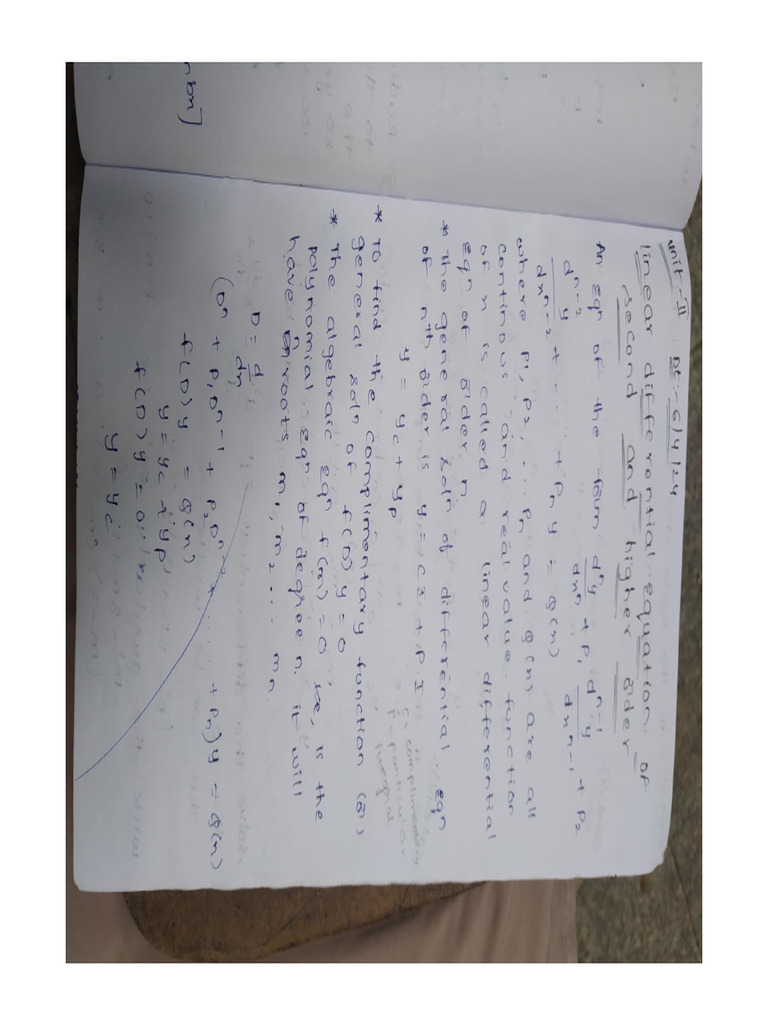 nbn]
Unit-II Dt:- 6/4/24
linear differential equation of
second and higher order
An eqn of the form dⁿy/dxⁿ + P₁ dⁿ⁻¹y/dxⁿ⁻¹ + P₂
dⁿ⁻²y/dxⁿ⁻² + .... + Pₙ y = Q(x)
where P₁, P₂, ... Pₙ and Q(x) are all
continous and real value function
of x is called a linear differential
eqn of order n
* the general soln of differential eqn
of nth order is y = C.I + P.I
y = yc + yp
c → complimentary
P. particular
integral
* To find the complimentary function (or)
general soln of f(D)y = 0
* The algebraic eqn f(m) = 0 ie, is the
polynomial eqn of degree n. it will
have n roots m₁, m₂ ... mₙ.
D = d/dx
(Dⁿ + P₁Dⁿ⁻¹ + P₂Dⁿ⁻² + .... + Pₙ)y = Q(x)
f(D)y = Q(x)
y = yc + yp
f(D)y = 0
y = yc